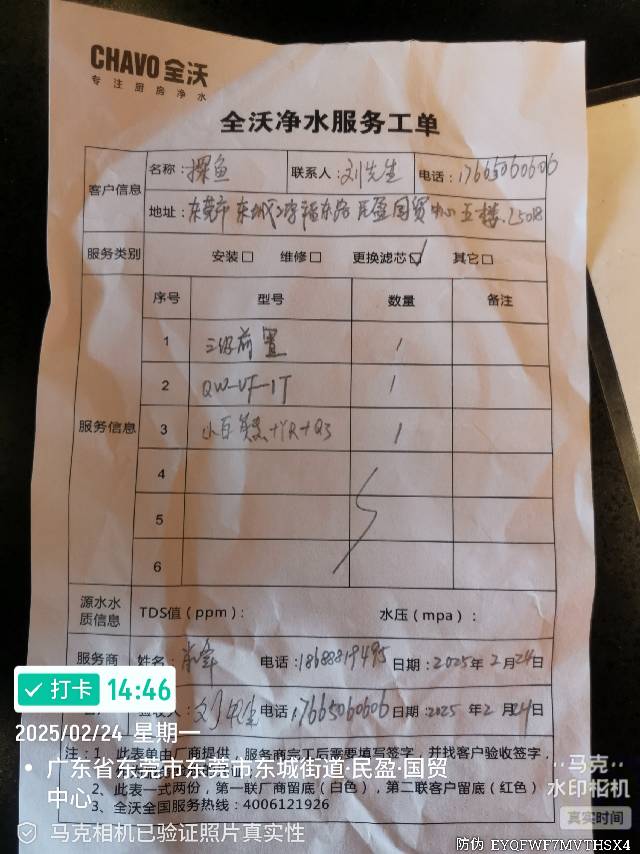 CHAVO 全沃
专注厨房净水
全沃净水服务工单
客户信息
名称：探鱼 联系人：刘先生 电话：17665060606
地址：东莞市东城 路民盈国贸中心五楼
服务类别 安装□ 维修□ 更换滤芯☑ 其它□
服务信息
序号 型号 数量 备注
1 三级前置 1
2 QW-UF-1T 1
3 1
4
5
6
源水水质信息 TDS值（ppm）： 水压（mpa）：
服务商 姓名： 电话：18688819495 日期：2025年2月24日
验收人：刘先生 电话：17665060606 日期：2025年2月24日
注：1、此表单由厂商提供，服务商完工后需要填写签字，并找客户验收签字，
2、此表一式两份，第一联厂商留底（白色），第二联客户留底（红色）
3、全沃全国服务热线：4006121926
打卡 14:46
2025/02/24 星期一
广东省东莞市东莞市东城街道·民盈·国贸
中心
马克相机已验证照片真实性
马克
水印相机
真实时间
防伪 EYOFWF7MVTHSX4